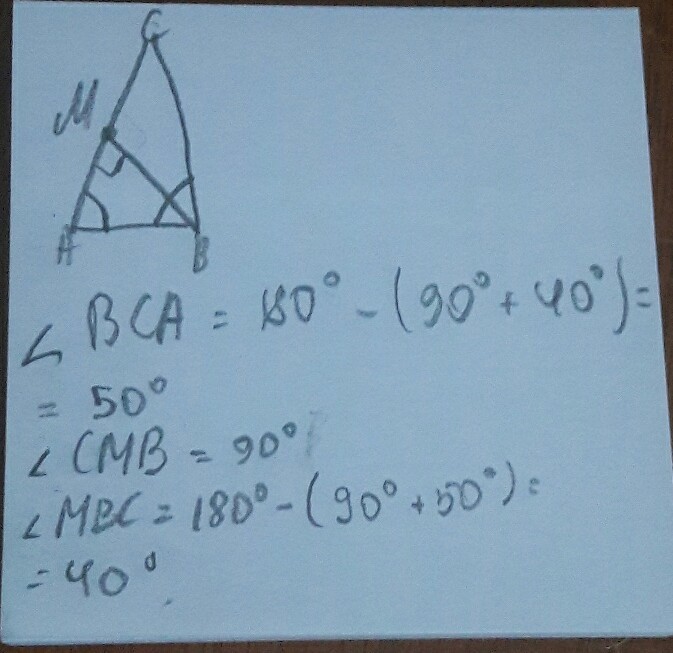 C
M
A
B
∠ BCA = 180° - (90° + 40°) =
= 50°
∠ CMB = 90°
∠ MBC = 180° - (90° + 50°) =
= 40°.